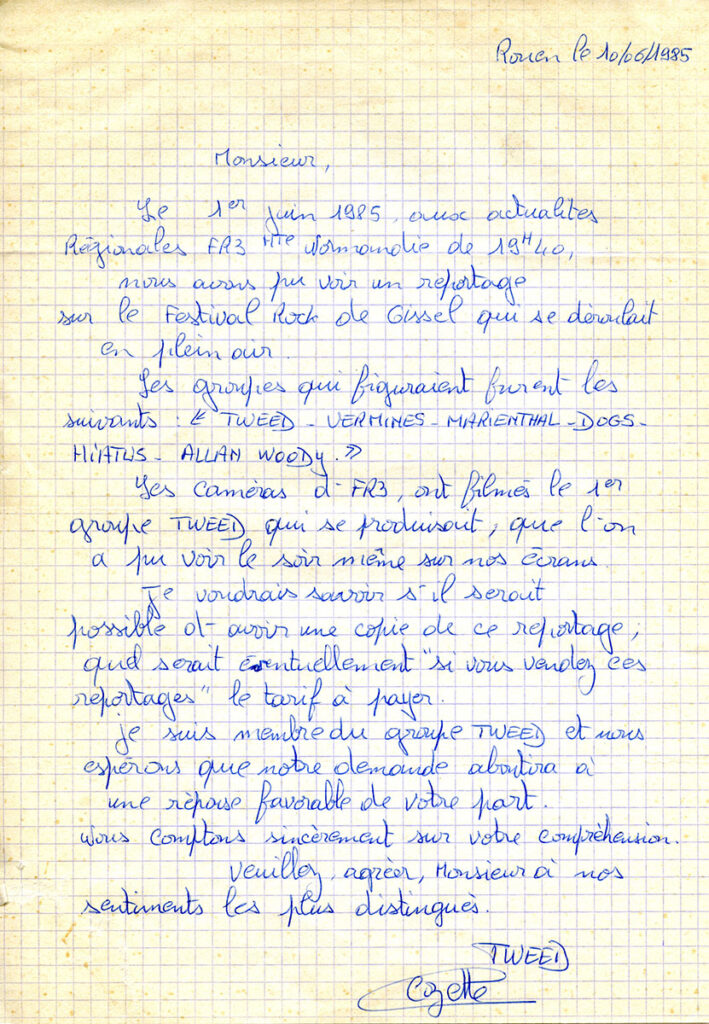 Rouen le 10/06/1985
Monsieur,
Le 1er juin 1985, aux actualités
Régionales FR3 Hte Normandie de 19H40,
nous avons pu voir un reportage
sur le Festival Rock de Oissel qui se déroulait
en plein air.
Les groupes qui figuraient furent les
suivants : « TWEED - VERMINES - MARIENTHAL - DOGS -
HIATUS - ALLAN WOODY. »
Les caméras d'FR3, ont filmés le 1er
groupe TWEED qui se produisait, que l'on
a pu voir le soir même sur nos écrans.
Je voudrais savoir s'il serait
possible d'avoir une copie de ce reportage,
quel serait éventuellement "si vous vendez ces
reportages" le tarif à payer.
je suis membre du groupe TWEED et nous
espérons que notre demande aboutira à
une réponse favorable de votre part.
Nous comptons sincèrement sur votre compréhension.
Veuillez, agréer, Monsieur à nos
sentiments les plus distingués.
TWEED
Cozette